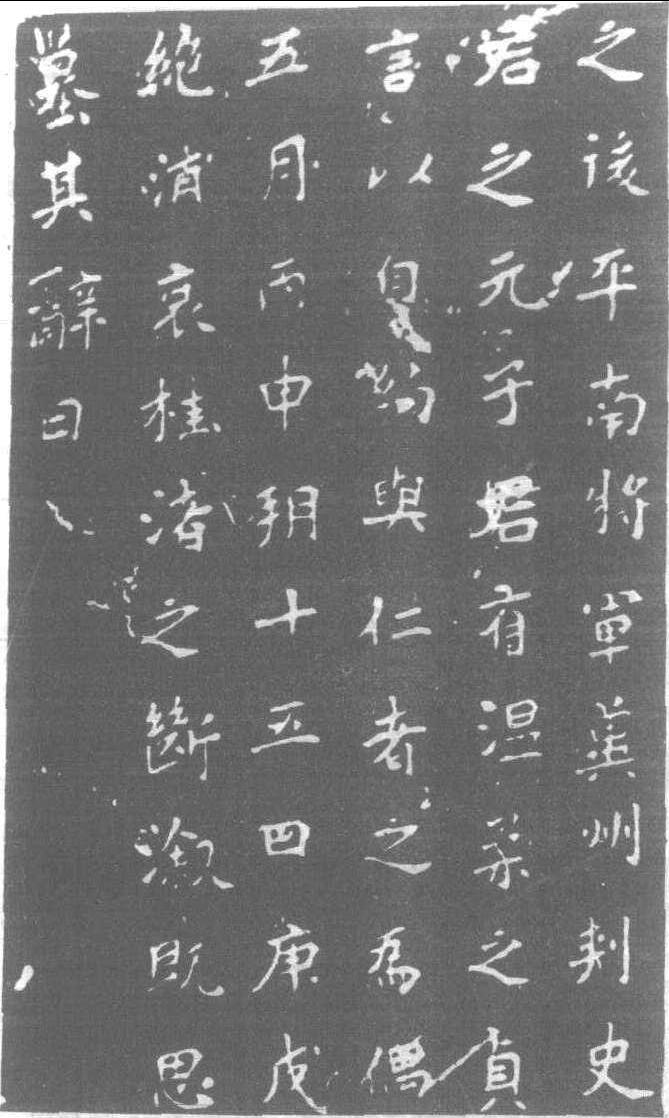 之後平南將軍冀州刺史
君之元子君有温柔之貞
言以與仁者之為
五月丙申朔十五日庚戌
絶哀桂渚之斷既思
墓其辭曰